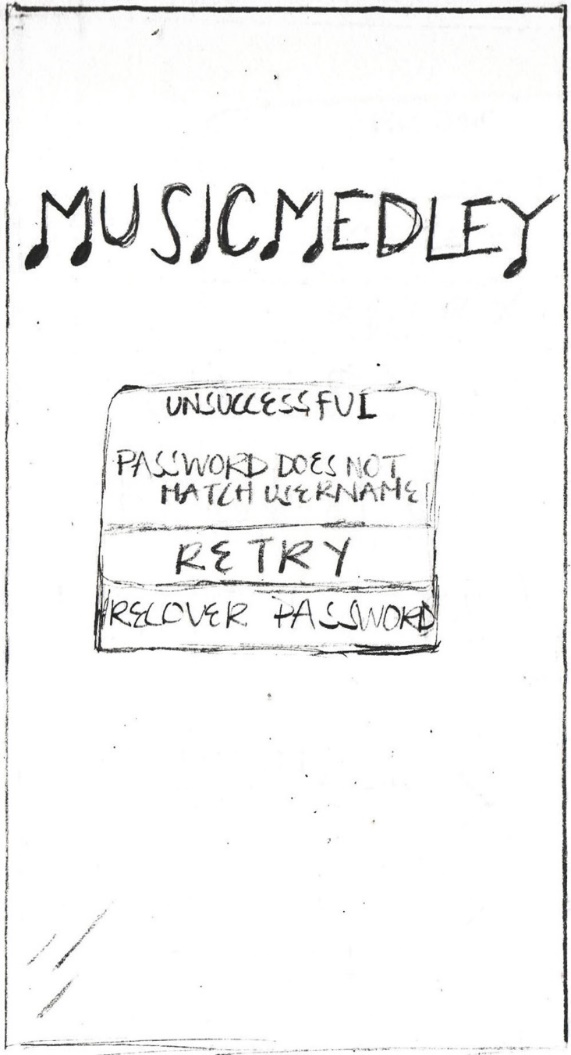 MUSICMEDLEY
UNSUCCESSFUL
PASSWORD DOES NOT
MATCH USERNAME
RETRY
RECOVER PASSWORD